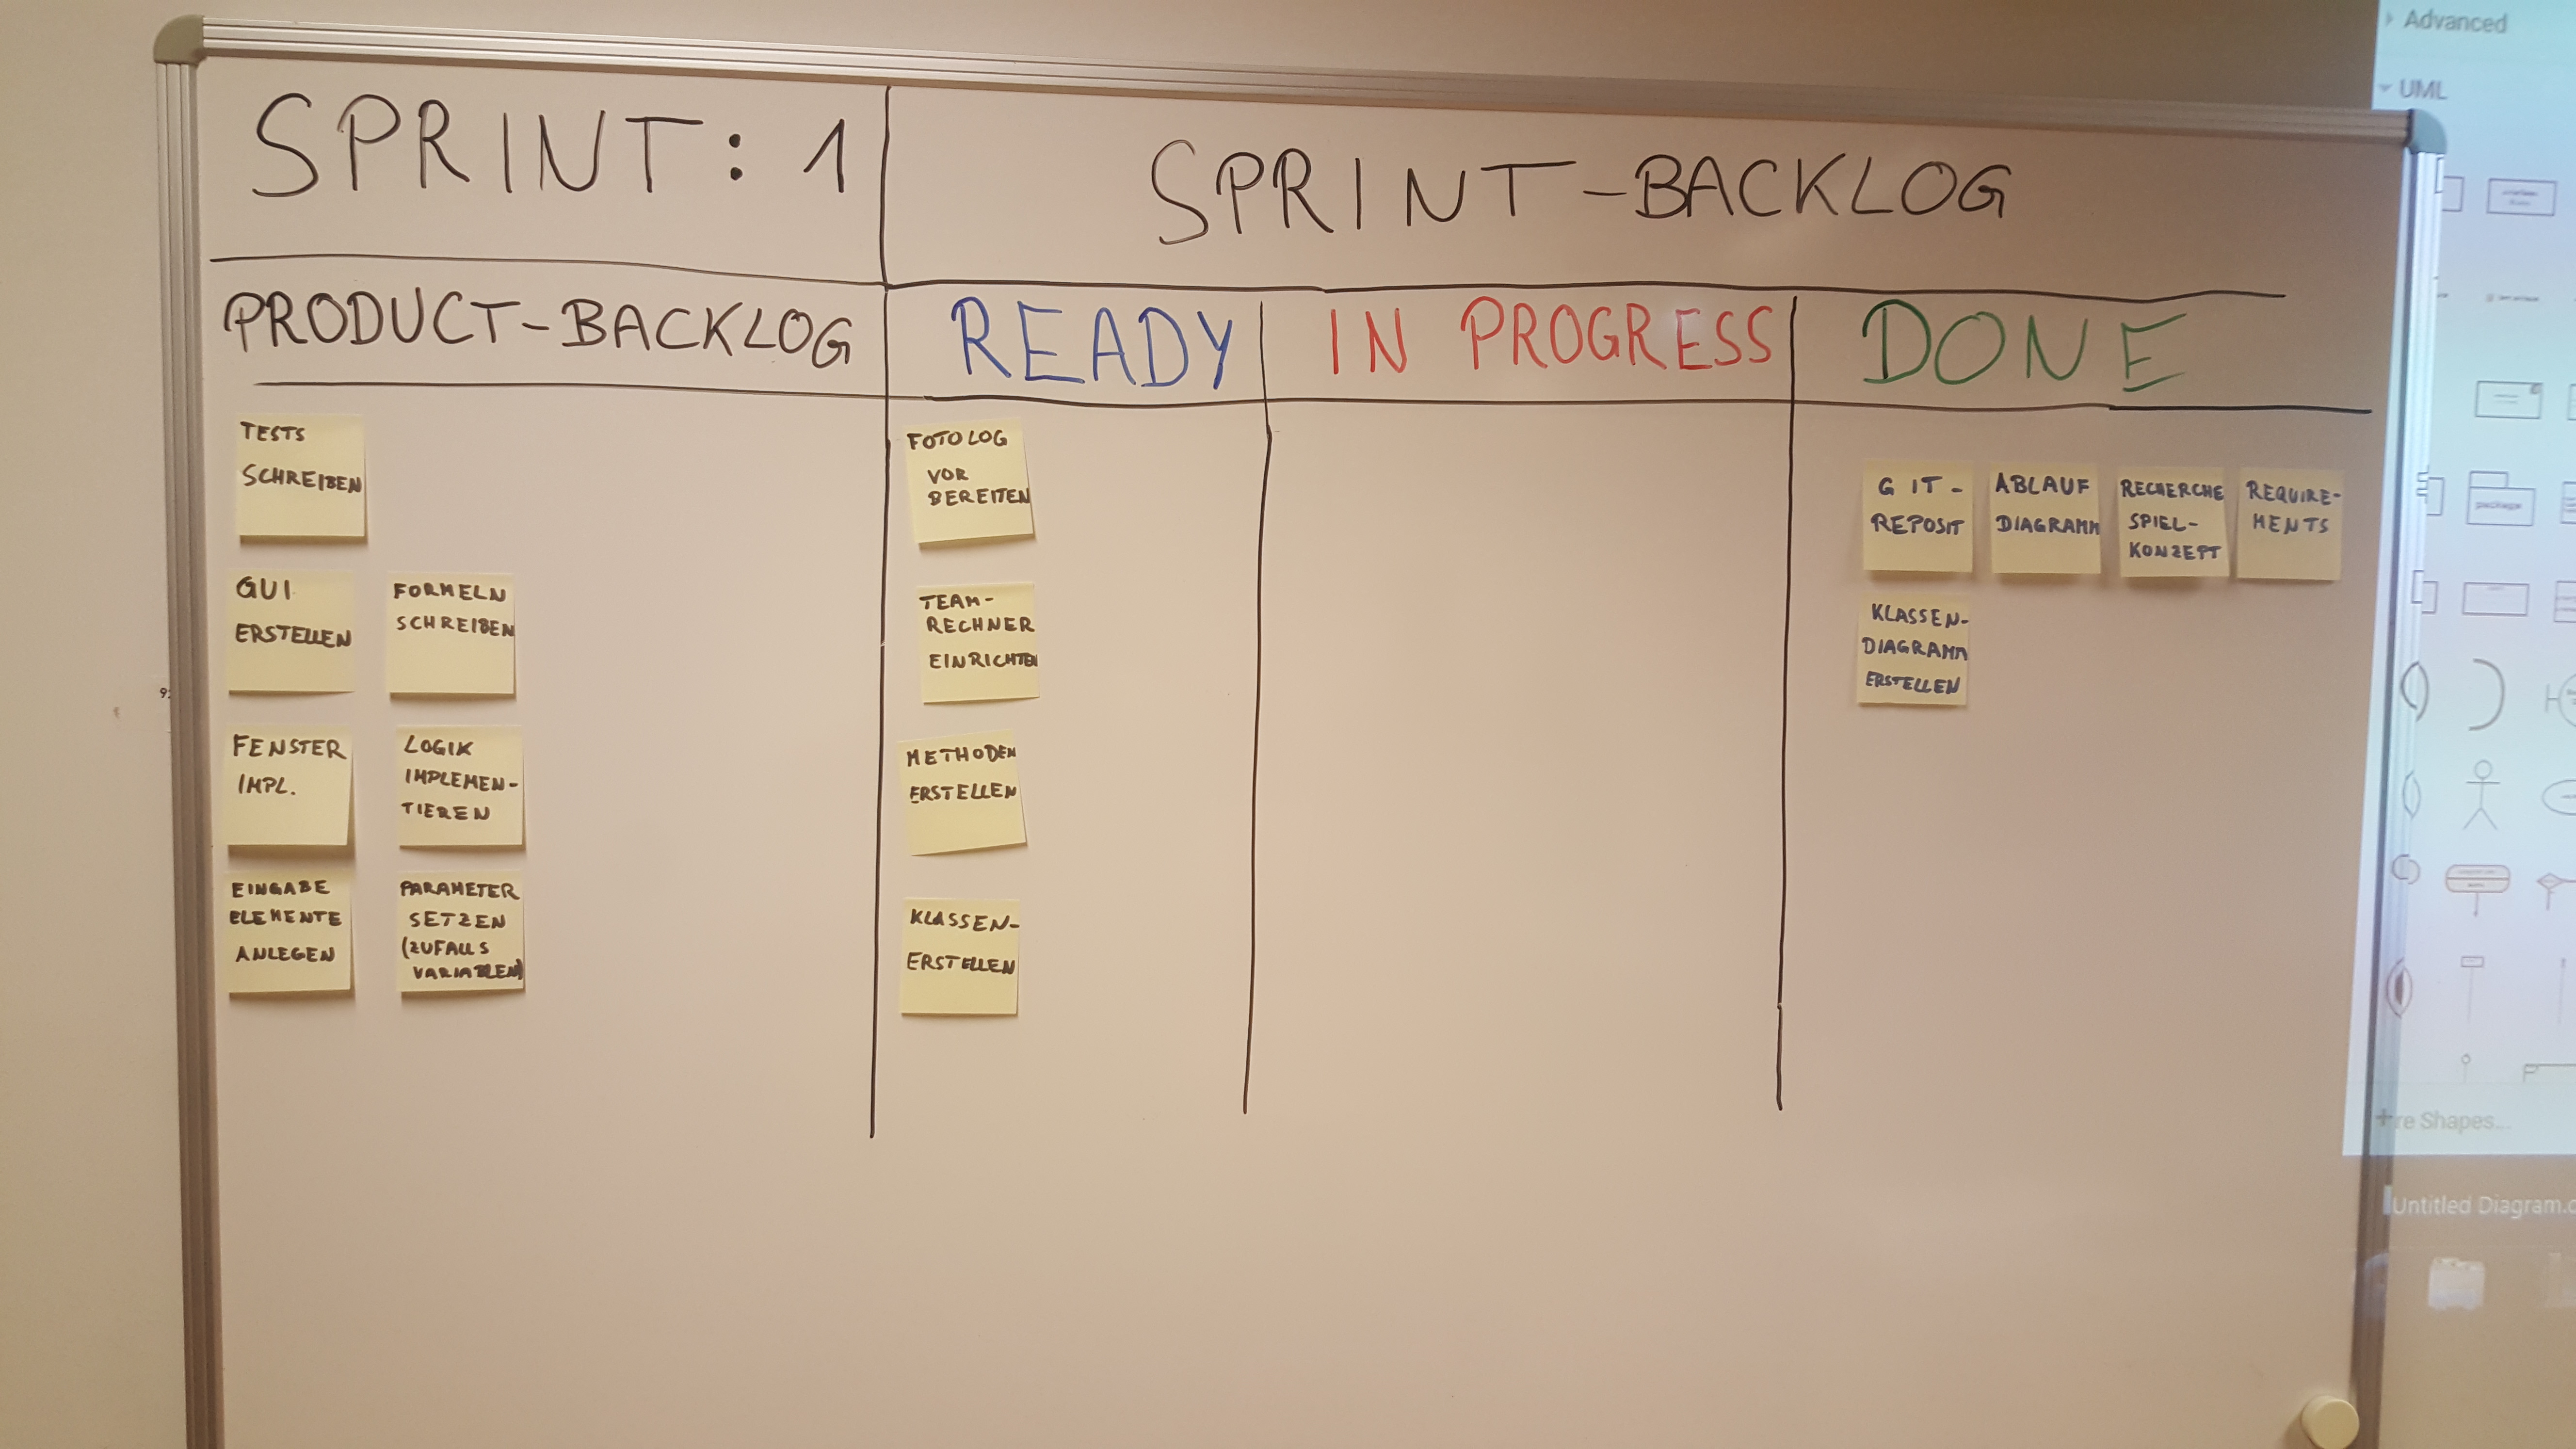 SPRINT: 1
SPRINT-BACKLOG
PRODUCT-BACKLOG
READY
IN PROGRESS
DONE
TESTS
SCHREIBEN
GUI
ERSTELLEN
FORMELN
SCHREIBEN
FENSTER
IMPL.
LOGIK
IMPLEMEN-
TIEREN
EINGABE
ELEMENTE
ANLEGEN
PARAMETER
SETZEN
(ZUFALLS
VARIABLEN)
FOTOLOG
VOR
BEREITEN
TEAM-
RECHNER
EINRICHTEN
METHODEN
ERSTELLEN
KLASSEN-
ERSTELLEN
GIT-
REPOSIT
ABLAUF
DIAGRAMM
RECHERCHE
SPIEL-
KONZEPT
REQUIRE-
MENTS
KLASSEN-
DIAGRAMM
ERSTELLEN
Advanced
UML
package
re Shapes...
Untitled Diagram.